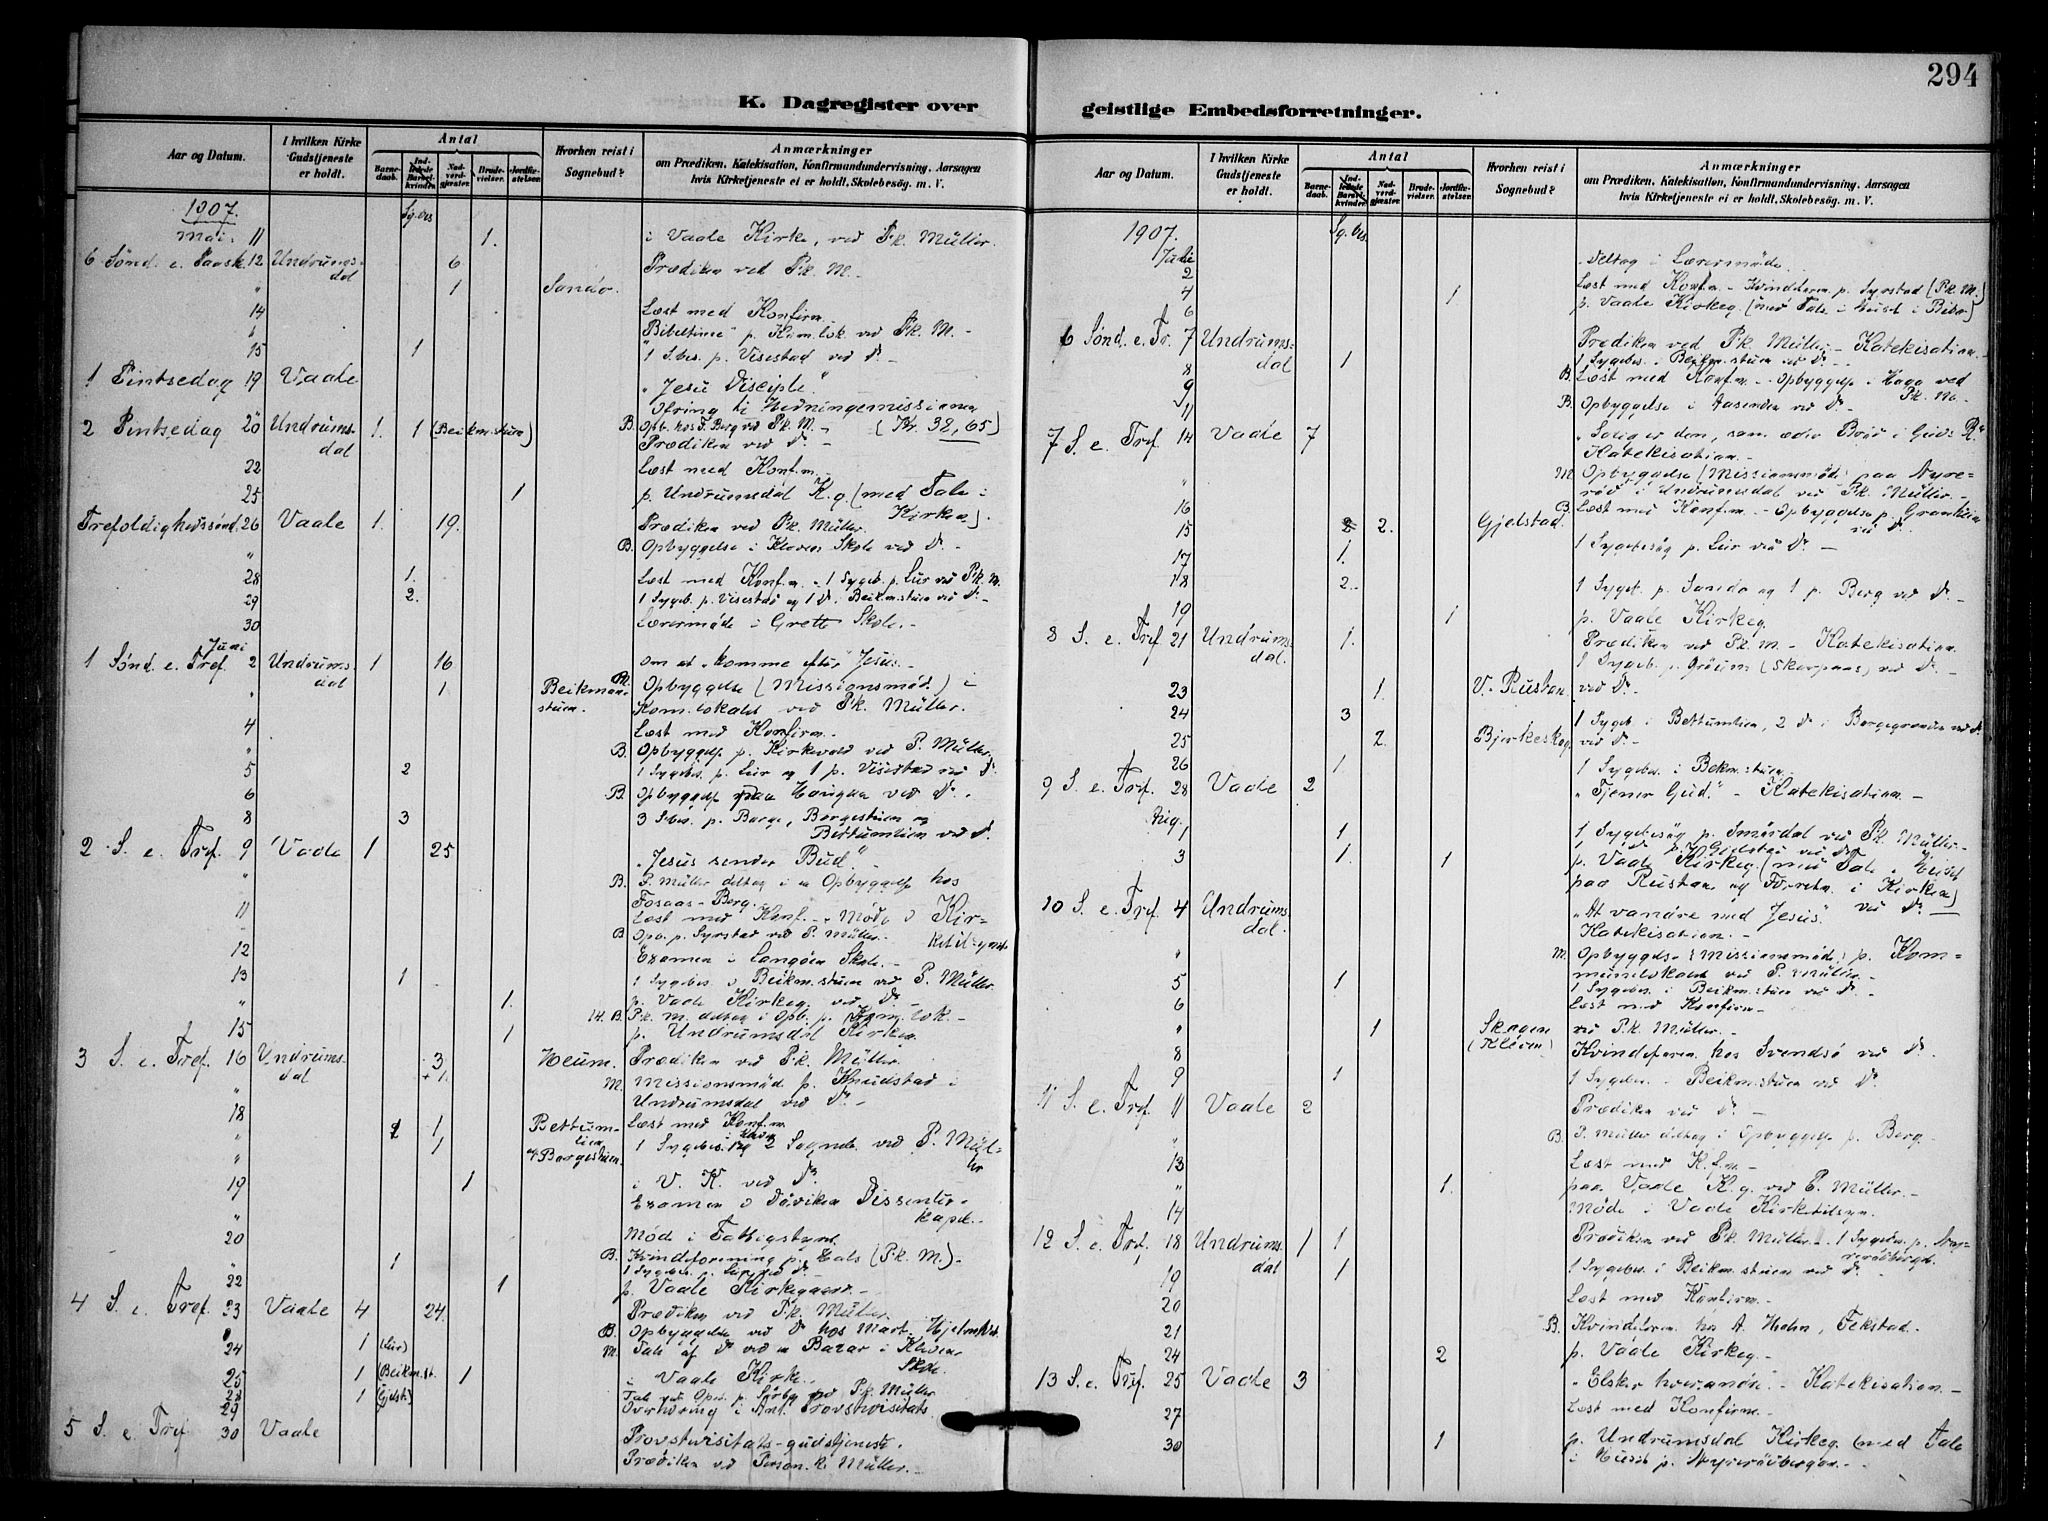 294
K. Dagregister over
geistlige Embedsforretninger.
Aar og Datum.
I hvilken Kirke Gudstjeneste er holdt.
Antal
Barne-daab.
Indledede Barselkvinder.
Nadverdgjæster.
Brudevielser.
Jordfæstelser.
Hvorhen reist i Sognebud?
Anmærkninger
om Prædiken, Katekisation, Konfirmandundervisning, Aarsagen
hvis Kirketjeneste ei er holdt, Skolebesøg. m. V.
1907. Sg.bes
Mai. 11 1. i Vaale Kirke, ved P.k. Müller.
6 Sønd. e. Paask. 12 Undrumsdal 6 Prædiken ved P.k. M. -
" 1 Sandø.
14 Læst med Konfirm.
" Bibeltime p. Kom.lok. ved P.k. M. -
15 1 1 S.bes. p. Visestad ved Do -
1 Pintsedag 19 Vaale "Jesu Disciple"
Ofring til Hedningemissionen
(Kr. 32,65)
2 Pintsedag 20 Undrumsdal 1. 1 (Beikm.stuen) B. Opb. hos Berg ved P.k. M. -
Prædiken ved Do -
22 Læst med Konf.m. -
25 1 p. Undrumsdal K.g. (med Tale i Kirken).
Trefoldighedssønd. 26 Vaale 1. 19. Prædiken ved P.k. Müller.
" B. Opbyggelse i Kleven Skole ved Do -
28 1. Læst med Konf.m. - 1 Sygeb. p. Lur ved P.k. M.
29 2. 1 Sygeb. p. Visestad og 1 Do i Beikm.stuen ved Do -
30 Lærermøde i Grette Skole. -
Juni
1 Sønd. e. Tref. 2 Undrumsdal 1 16 Om at "komme efter" Jesus. -
" 1. Beikmanstuen. M. Opbyggelse (Missionsmød.) i
Kom.lokalet ved P.k. Müller.
4 Læst med Konfirm. -
" B. Opbyggels p. Kirkevold ved P. Müller.
5 2 1 Sygebes. p. Leir og 1 p. Visestad ved Do
6 B. Opbyggels paa Haugen ved Do.
8 3 3 S.bes. p. Berge, Borgestuen og
Bettumlien ved Do.
2 S. e. Tref. 9 Vaale 1 25 "Jesus sender Bud".
" B. P. Müller deltog i en Opbyggels hos
Fosaas - Berg.
11 Læst med Konf. - Møde i Kirketilsynet
" B. Opb. p. Syrstad ved P. Müller. -
12 Examen i Langøen Skole. -
13 1 1 Sygebes. i Beikm.stuen ved P. Müller.
" 1. p. Vaale Kirkeg. ved Do -
14. B. P.k. M. deltog i Opb. p. Kom. lok. -
15 1 p. Undrumsdal Kirkeg.
3 S. e. Tref. 16 Undrumsdal 3 +1. Heum. Prædiken ved P.k. Müller.
" M. Missionsmød p. Knudstad i
Undrumsdal ved Do -
18 1 Bettumlien Læst med Konf.m.
" 1 og Borgestuen. 1 Sygebes. og 2 Sogneb. ved P. Müller
" 1 i V. K. ved Do.
19 Examen i Døviken Dissenterkapel. -
20 Møde i Fattigstyret.
B. Kvindeforening p. Hals (P.k. M.) -
" 1 1 Sygebes.
22 1 p. Vaale Kirkegaard.
4 S. e. Tref. 23 Vaale 4 24. Prædiken ved P.k. Müller.
" B. Opbyggelse ved Do hos Mart.
24 1 (Lur) M. Tale af Do ved en Bazar i Kleven Skole
25 1 (Beikm.st. 1 i Vaale Kirke.
28 1 (Gjelst.)
29 Overhøring i Anl. Provstvisitats.
5 S. e. Tref. 30 Vaale Provstvisitats-gudstjeneste.
Prædiken ved Person.k. Müller. -
Aar og Datum.
I hvilken Kirke Gudstjeneste er holdt.
Antal
Barne-daab.
Indledede Barselkvinder.
Nadverdgjæster.
Brudevielser.
Jordfæstelser.
Hvorhen reist i Sognebud?
Anmærkninger
om Prædiken, Katekisation, Konfirmandundervisning, Aarsagen
hvis Kirketjeneste ei er holdt, Skolebesøg. m. V.
1907. Sg. bes.
Juli
2 Deltog i Lærermøde.
4 1 Læst med Konf.m. - Kvindeform. p. Syrstad (P.k. M.)
6 p. Vaale Kirkeg. (med Tale i Huset
6 Sønd. e. Tr. 7 Undrumsdal Prædiken ved P.k. Müller. - Katekisation. -
8 1 1 Sygebes. Beikm.stuen ved Do -
9 B. Læst med Konf.m. - Opbyggels i Haga ved P.k. M.
11 B. Opbyggelse i Aasenden ved Do -
7 S. e. Tref. 14 Vaale 7 "Salig er den, som æder Brød i Guds R."
Katekisation. -
" M. Opbyggelse (Missionsmød) paa Nyrerød
i Undrumsdal ved P.k. Müller. -
16 B. Læst med Konf.m. - Opbyggelse p. ved Do
15 2 2. Gjelstad.
17 1. 1 Sygebesøg p. Leir ved Do -
18 2. 1 Sygeb. p. Sandø og 1 p. Berg ved Do -
19 1 p. Vaale Kirkeg.
8 S. e. Tref 21 Undrumsdal. 1. Prædiken ved P.k. M. - Katekisation.
1 Sygeb. p. ved Do -
23 1. V. Rustan ved Do -
24 3 1 Sygeb. i Bettumlien, 2 Do i ved Do
25 2. Bjerkeskog ved Do -
26 1 1 Sygebes. i Beikm.stuen.
9 S. e. Tref. 28 Vaale 2 "Tjener Gud." - Katekisation. -
Aug. 1 1 1 Sygebesøg p. Smørdal ved P.k. Müller. -
1 Do p. Gjelstad ved Do
3 1. 1 p. Vaale Kirkeg. (med Tale i Huset
paa Rustan og Forretn. i Kirken)
ved Do.
10 S. e. Tref. 4 Undrumsdal. "At vandre med Jesus".
Katekisation. -
" M. Opbyggelse (Missionsmøde) p. Kommunelokalet
ved P. Müller. -
5 1 1 Sygebes. i Beikm.stuen ved Do. -
6 Læst med Konfirm. -
" 1 Skogen (Kleven) ved P.k. Müller. -
8 Kvindeforen. hos Svendsø ved Do.
9 1 1 Sygebes. - Beikm.stuen ved Do.
11 S. e. Tref. 11 Vaale 2 Prædiken ved Do -
" B. P. Müller deltog i Opbyggelse p. Berg. -
13 Læst med K.f.m. -
" 1. paa Vaale K.g. ved P. Müller. -
14 Møde i Vaale Kirketilsyn.
12 S. e. Tref. 18 Undrumsdal 1 1 Prædiken ved P.k. Müller. 1 Sygebes. p. Nyrerødbergit.
19 1 1 Sygebes. i Beikm.stuen ved Do. -
20 Læst med Konfirm. -
21 B. Kvindeforen. hos A. Holm, Fekstad. -
24 2 p. Vaale Kirkeg. -
13 S. e. Tref. 25 Vaale 3 "Elsker hverandre". - Katekisation. -
27 Læst med Konfirm. -
30 1 p. Undrumsdal Kirkeg. (med Tale
i Huset p. Nyrerødbergan. -